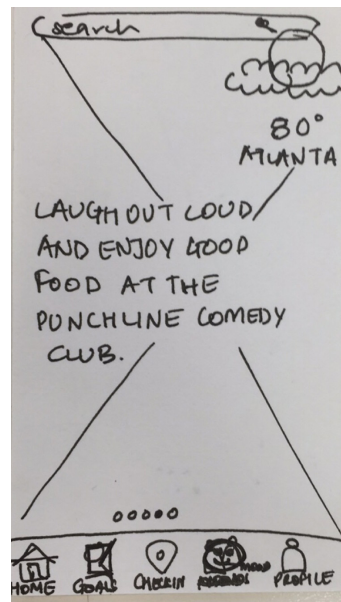 Search
80°
ATLANTA
LAUGH OUT LOUD
AND ENJOY GOOD
FOOD AT THE
PUNCHLINE COMEDY
CLUB.
HOME GOALS CHECKIN MOOD PROFILE